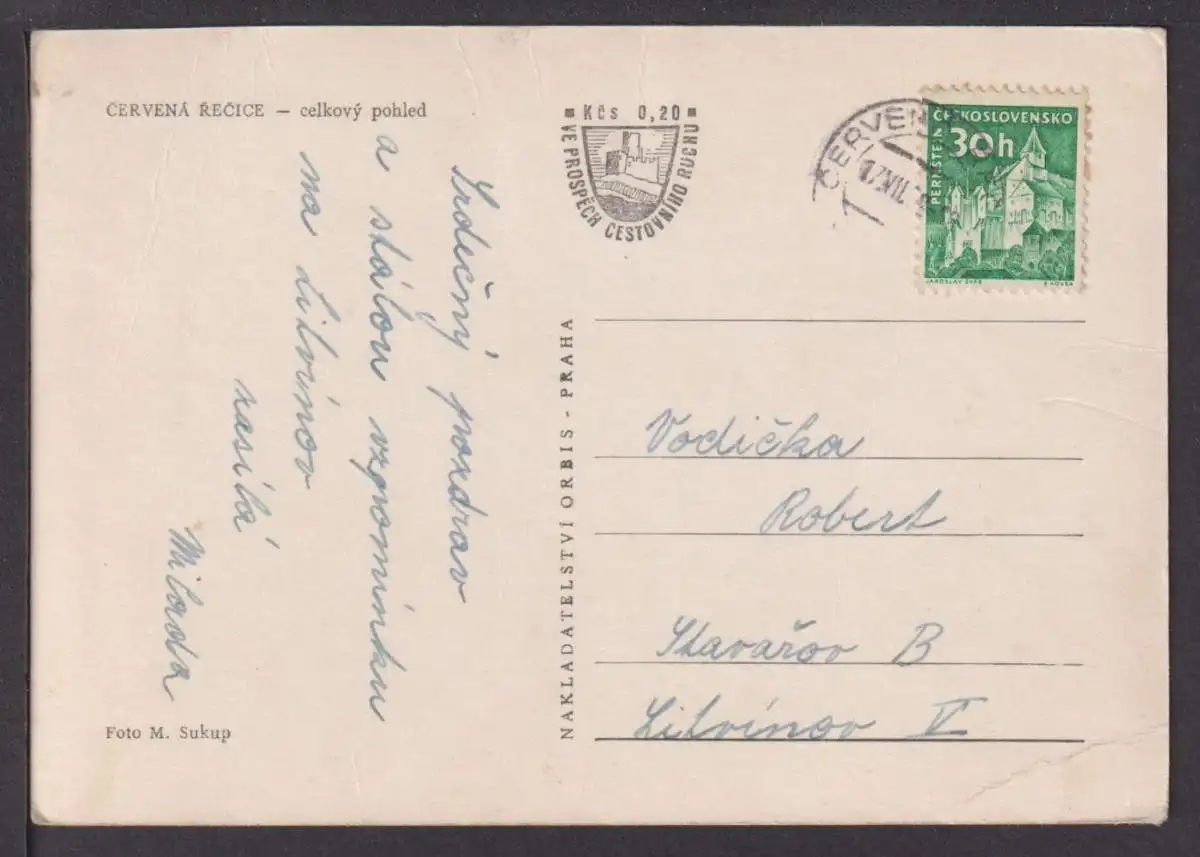 ČERVENÁ ŘEČICE — celkový pohled
Srdečný pozdrav
a stálou vzpomínku
na Litvínov
zasílá
Milada
Foto M. Sukup
NAKLADATELSTVÍ ORBIS - PRAHA
Kčs 0,20
VE PROSPĚCH CESTOVNÍHO RUCHU
ČERVEN
17.VII.
ČESKOSLOVENSKO
30h
PERNŠTEJN
JAROSLAV
Vodička
Robert
Stavařov B
Litvínov V